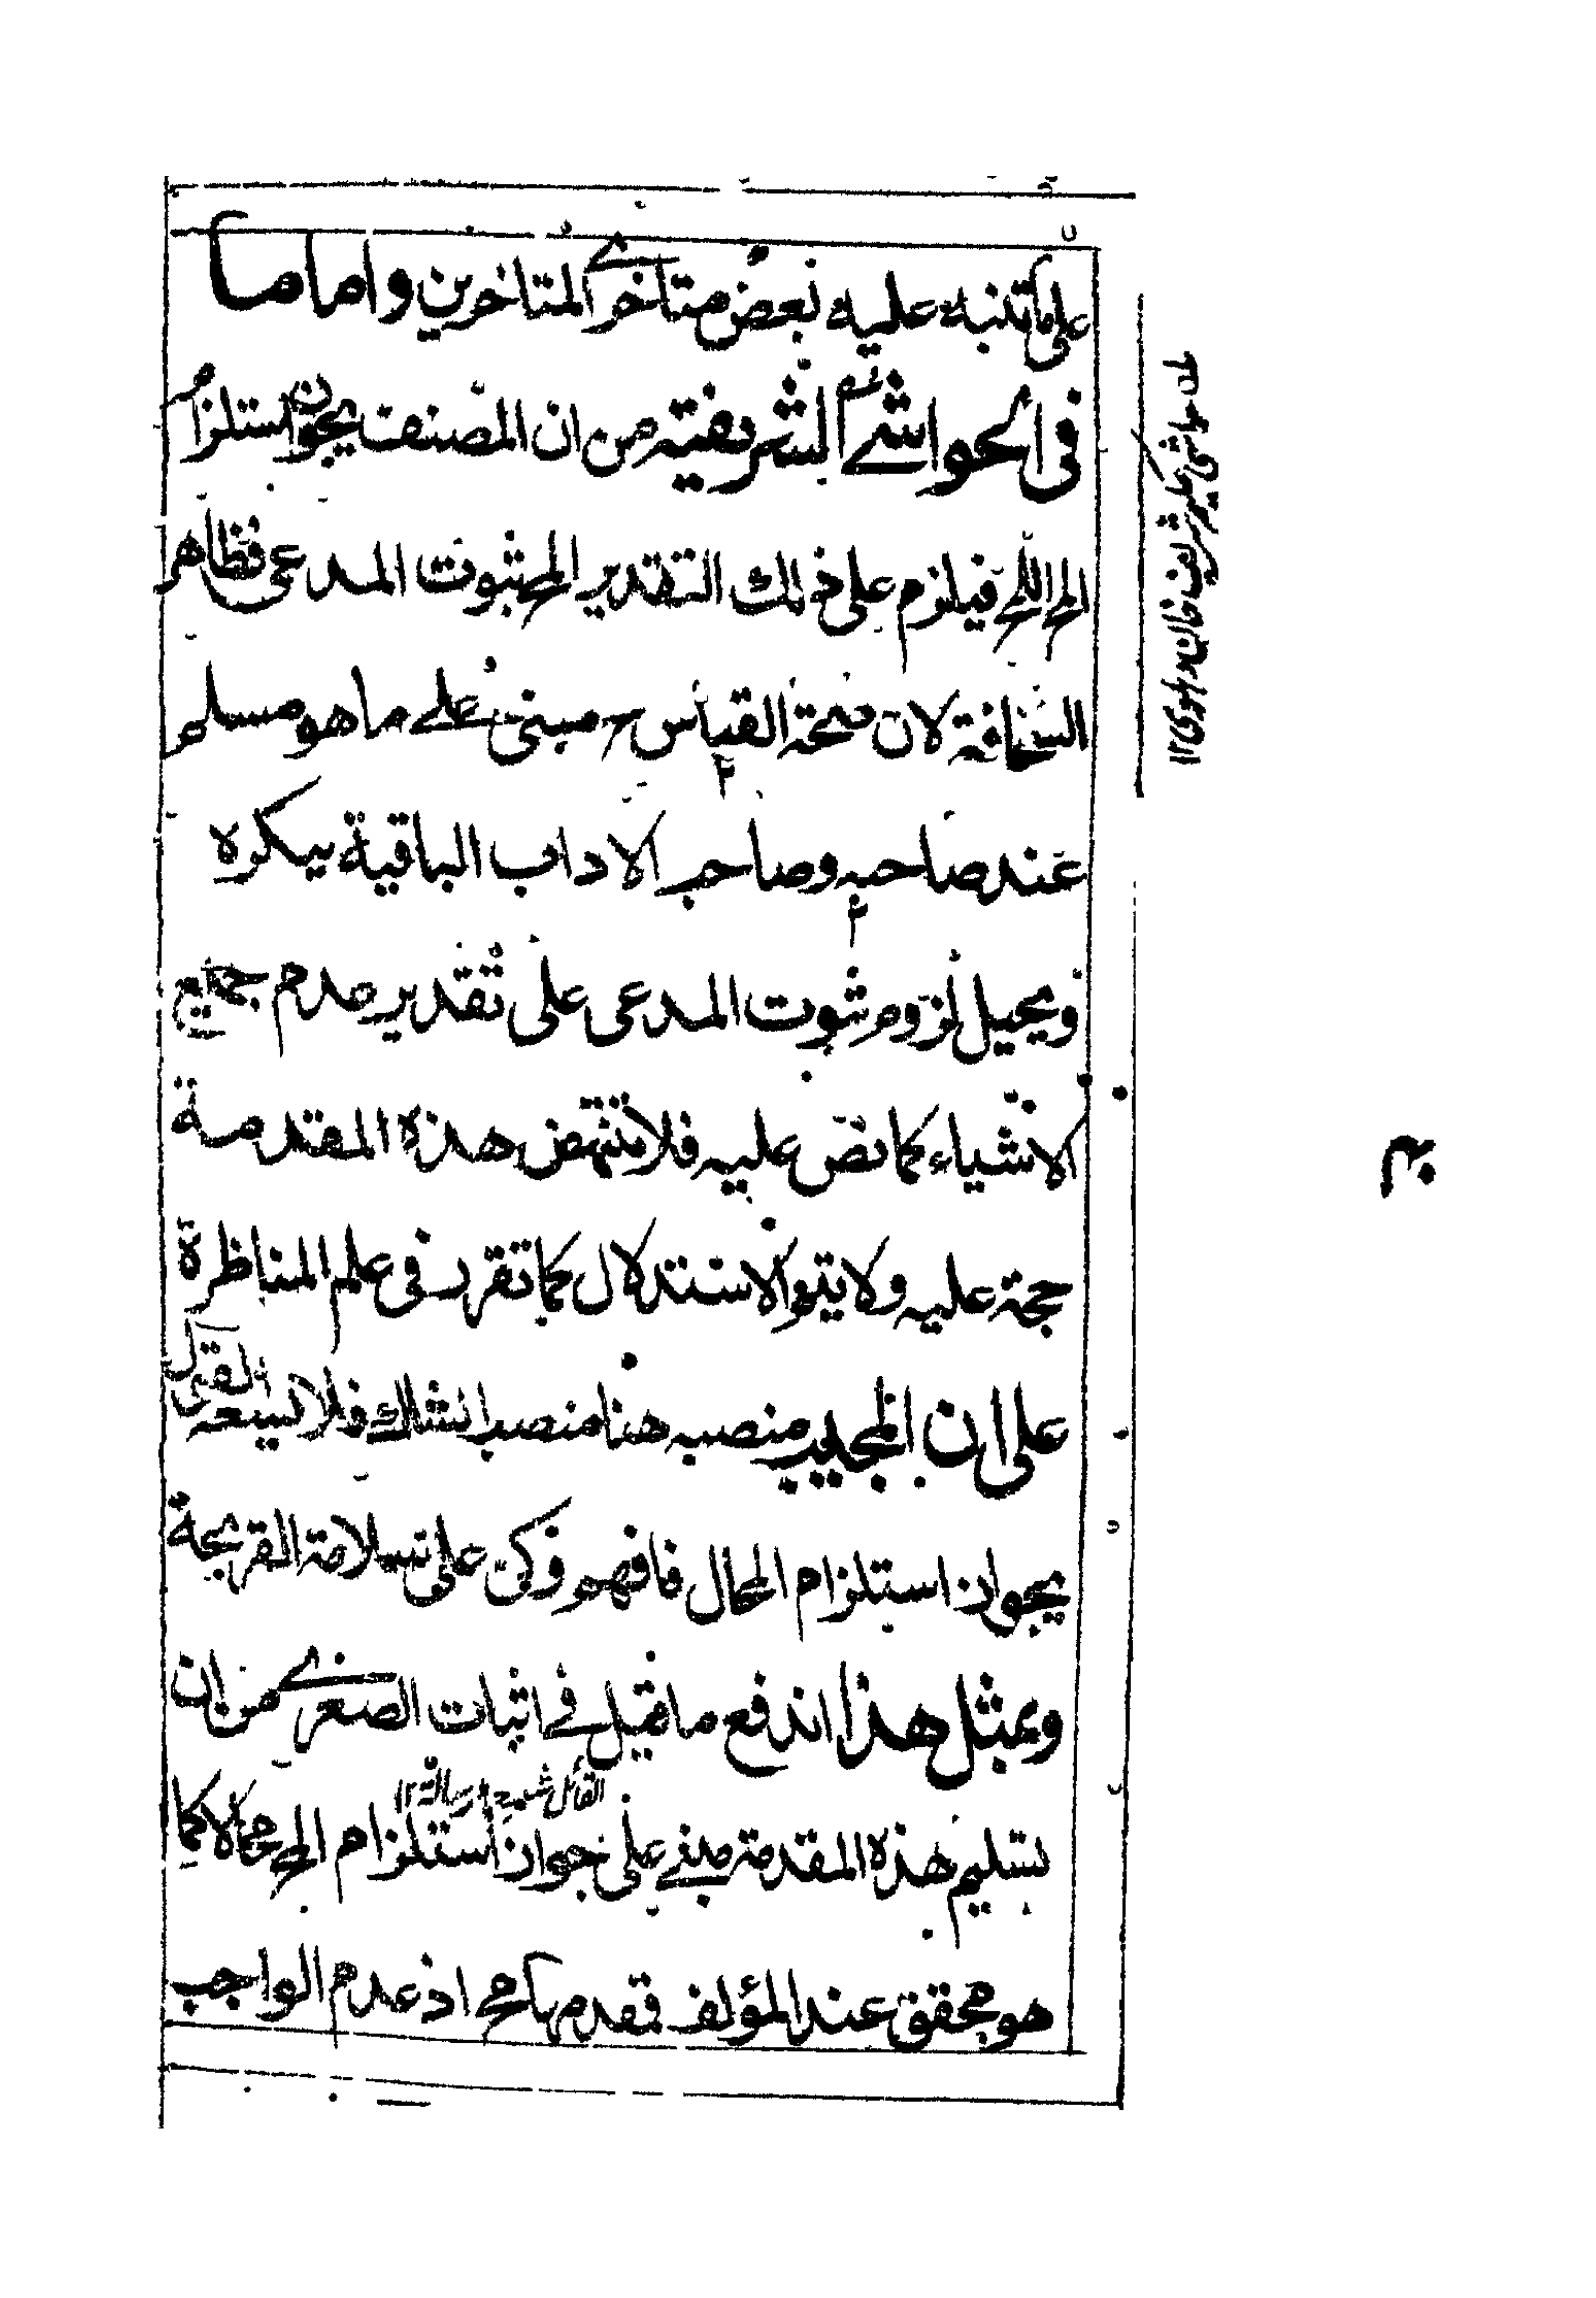 على ما تنبه عليه بعض متاخرے المتاخرين واما ما
فى الحواشے الشريفيته من ان المصنف يجوز استلزام
المح اللمح فيلزم على ذلك التقدير المح ثبوت المدعى فظاهر
السخافة لان صحة القياس مبنى علے ما هو مسلم
عند صاحبه وصاحب الاداب الباقية ينكره
ويحيل لزوم ثبوت المدعى على تقدير عدم جميع
الاشياء كما نص عليه فلا تنتهض هذه المقدمة
حجة عليه ولا يتم الاستدلال كما تقرر فى علم المناظرة
على ان المجيب منصبه هنا منصب الشاك فلا يسعه القول
بجواز استلزام المحال فافهم وكن على سلامة القريحة
وبمثل هذا اندفع ما قيل فے اثبات الصغرے من ان
القائل شيخ رسالة ١٢
تسليم هذه المقدمة مبنے على جواز استلزام المح محالا كما
هو محقق عند المؤلف فمقدمها مح اذ عدم الواجب
حواشى حكيم شريف خان دهلوى ١٢